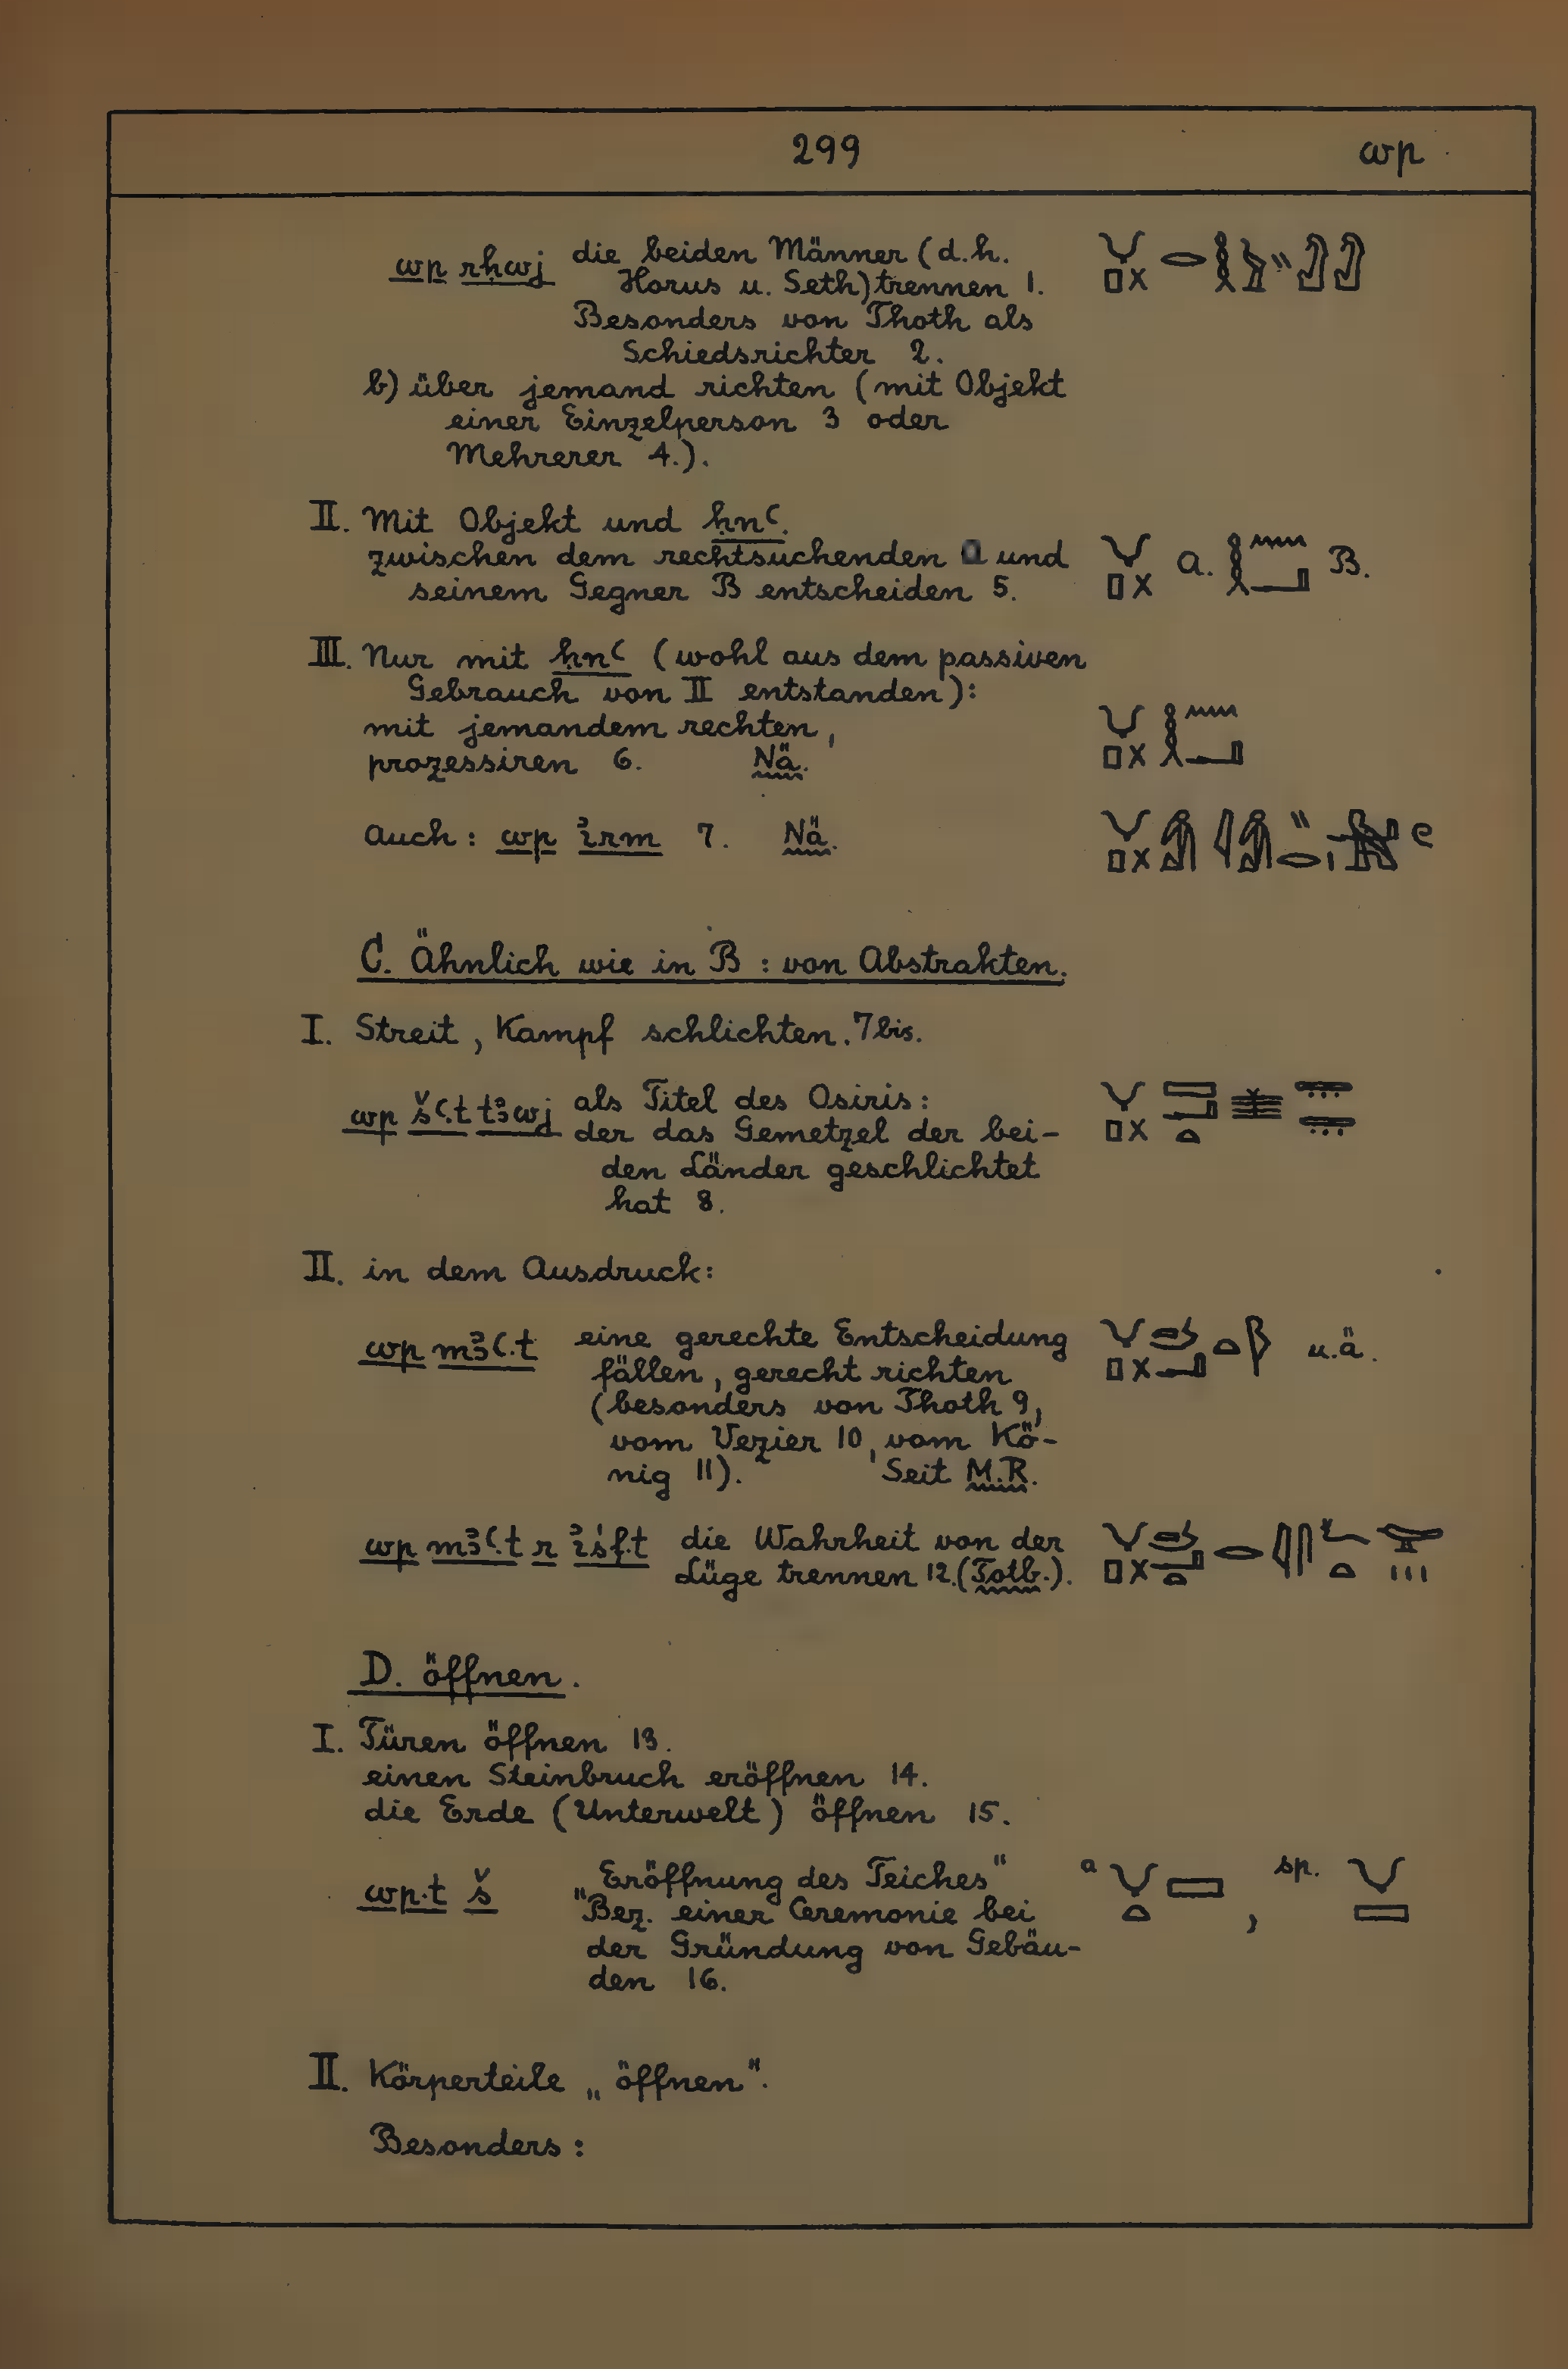 299 wp
wp rḥwj die beiden Männer (d.h.
Horus u. Seth) trennen 1.
Besonders von Thoth als
Schiedsrichter 2.
b) über jemand richten (mit Objekt
einer Einzelperson 3 oder
Mehrerer 4.).
II. Mit Objekt und ḥnꜥ.
zwischen dem rechtsuchenden A und A. B.
seinem Gegner B entscheiden 5.
III. Nur mit ḥnꜥ (wohl aus dem passiven
Gebrauch von II entstanden):
mit jemandem rechten,
prozessiren 6. Nä.
Auch: wp ꞽrm 7. Nä.
C. Ähnlich wie in B : von Abstrakten.
I. Streit, Kampf schlichten. 7bis.
wp šꜥ.t tꜣwj als Titel des Osiris:
der das Gemetzel der bei-
den Länder geschlichtet
hat 8.
II. in dem Ausdruck:
wp mꜣꜥ.t eine gerechte Entscheidung u.ä.
fällen, gerecht richten
(besonders von Thoth 9,
vom Vezier 10, vom Kö-
nig 11). Seit M.R.
wp mꜣꜥ.t r ꞽśf.t die Wahrheit von der
Lüge trennen 12. (Totb.).
D. öffnen.
I. Türen öffnen 13.
einen Steinbruch eröffnen 14.
die Erde (Unterwelt) öffnen 15.
wp.t š „Eröffnung des Teiches" a , sp.
Bez. einer Ceremonie bei
der Gründung von Gebäu-
den 16.
II. Körperteile „öffnen".
Besonders: